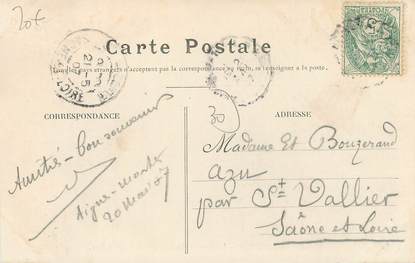 20€
Carte Postale
Tous les pays étrangers n'acceptent pas la correspondance au recto, se renseigner à la poste.
CORRESPONDANCE
ADRESSE
30
Amitié - bon souvenir
20 Mai 07
Madame et Bouzerand
azu
par St Vallier
Saône et Loire
21-5
LOIRE
5